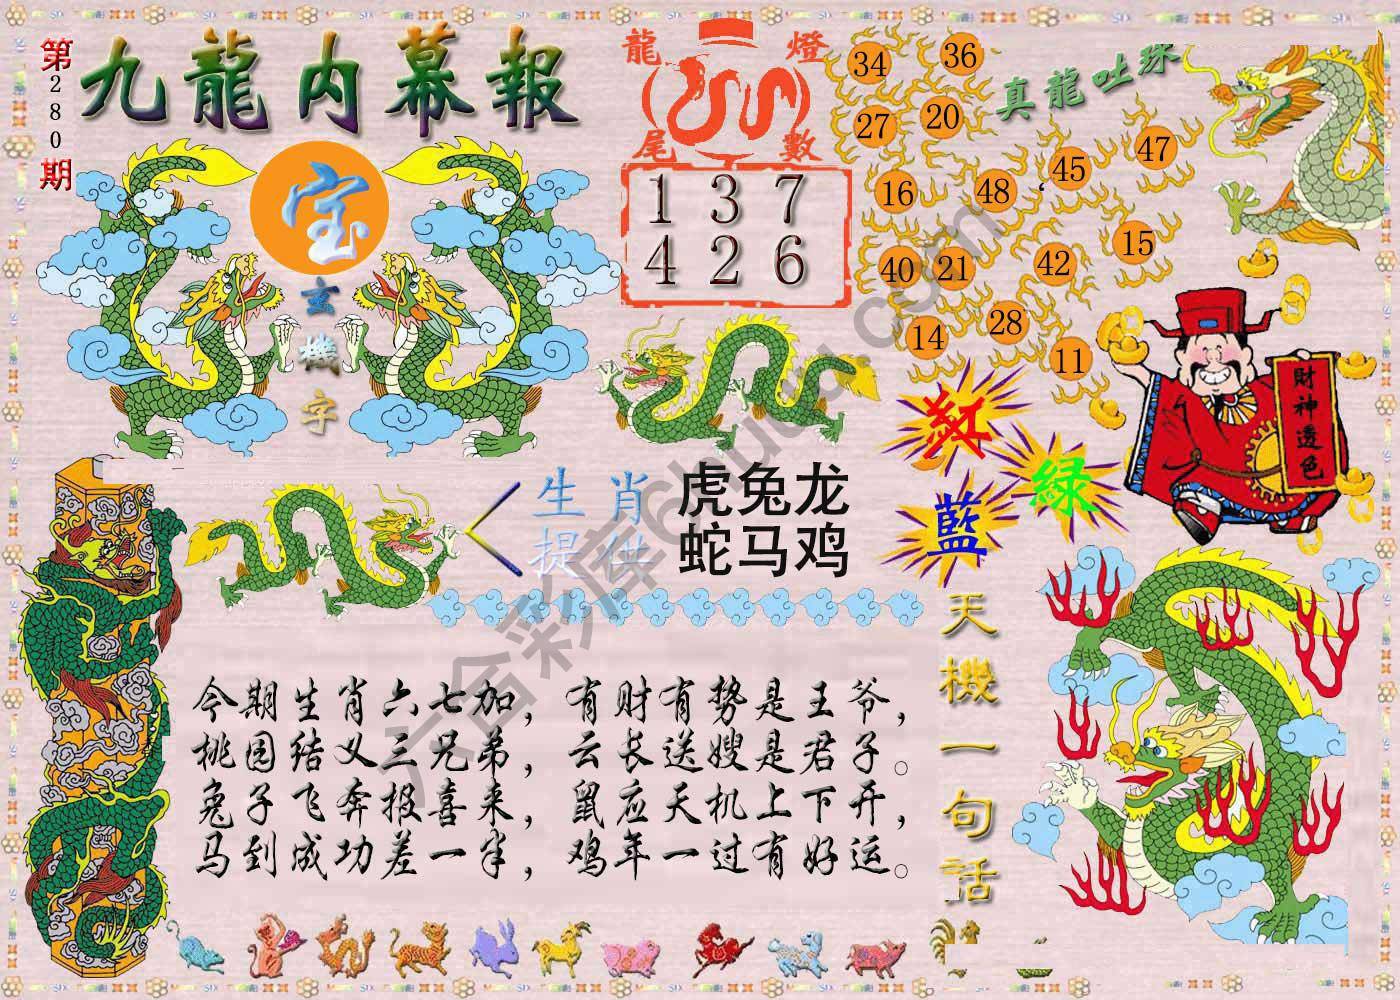 第280期
九龍内幕報
宝
玄機字
龍燈
尾數
1 3 7
4 2 6
34 36
27 20
16 48 45 47
40 21 42 15
14 28 11
真龍吐珠
財神透色
紅
綠
藍
生肖
提供
虎兔龙
蛇马鸡
天機一句話
今期生肖六七加，有财有势是王爷，
桃园结义三兄弟，云长送嫂是君子。
兔子飞奔报喜来，鼠应天机上下开，
马到成功差一半，鸡年一过有好运。